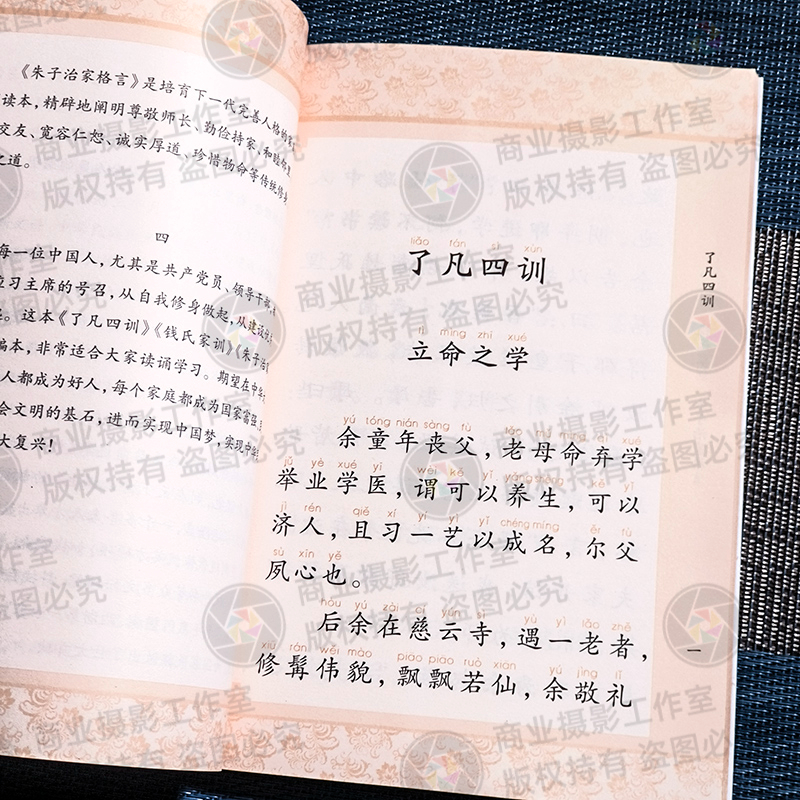 《朱子治家格言》是培育下一代完善人格的
读本，精辟地阐明尊敬师长、勤俭持家，和睦邻里
交友、宽容仁恕、诚实厚道、珍惜物命等传统修身
之道。
四
每一位中国人，尤其是共产党员、领导干部，
应习主席的号召，从自我修身做起，从建设
。这本《了凡四训》《钱氏家训》《朱子治
编本，非常适合大家读诵学习。期望在中华
人都成为好人，每个家庭都成为国家富强、
会文明的基石，进而实现中国梦，实现中华
大复兴！
liǎo fán sì xùn
了凡四训
lì mìng zhī xué
立命之学
yú tóng nián sàng fù lǎo mǔ mìng qì xué
余童年丧父，老母命弃学
jǔ yè xué yī wèi kě yǐ yǎng shēng kě yǐ
举业学医，谓可以养生，可以
jì rén qiě xí yī yì yǐ chéng míng ěr fù
济人，且习一艺以成名，尔父
sù xīn yě
夙心也。
hòu yú zài cí yún sì yù yī lǎo zhě
后余在慈云寺，遇一老者，
xiū rán wěi mào piāo piāo ruò xiān yú jìng lǐ
修髯伟貌，飘飘若仙，余敬礼
了凡四训
一
商业摄影工作室
版权持有 盗图必究